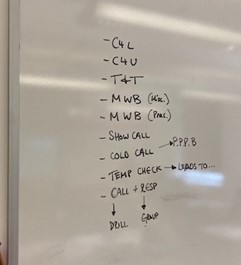 - C4L
- C4U
- T4T
- MWB (Misc.)
- MWB (Prac.)
- SHOW CALL
- COLD CALL → P.P.P.B
- TEMP CHECK → LEADS TO...
- CALL + RESP
DRILL GROUP